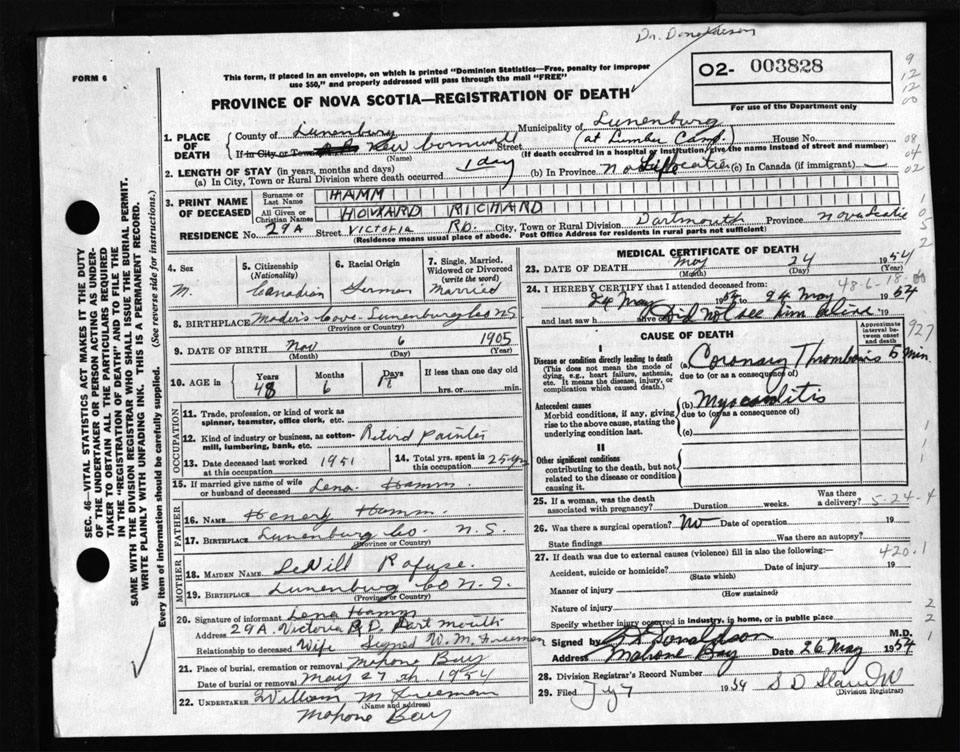 Dr. Donaldson
FORM 6
This form, if placed in an envelope, on which is printed "Dominion Statistics—Free, penalty for improper
use $50," and properly addressed will pass through the mail "FREE"
PROVINCE OF NOVA SCOTIA—REGISTRATION OF DEATH
02- 003828
For use of the Department only
9
12
12
00
08
04
02
1. PLACE OF DEATH
County of Lunenburg Municipality of Lunenburg
If in City or Town New Cornwall Street (at Lumber Camp) House No.
(Name) (If death occurred in a hospital or institution, give the name instead of street and number)
2. LENGTH OF STAY (in years, months and days)
(a) In City, Town or Rural Division where death occurred 1 day (b) In Province Life (c) In Canada (if immigrant) —
3. PRINT NAME OF DECEASED
Surname or Last Name HAMM
All Given or Christian Names HOWARD RICHARD
RESIDENCE No. 29A Street VICTORIA RD. City, Town or Rural Division Dartmouth Province Nova Scotia
(Residence means usual place of abode. Post Office Address for residents in rural parts not sufficient)
1
05
2
SEC. 46—VITAL STATISTICS ACT MAKES IT THE DUTY
OF THE UNDERTAKER OR PERSON ACTING AS UNDER-
TAKER TO OBTAIN ALL THE PARTICULARS REQUIRED
IN THE "REGISTRATION OF DEATH" AND TO FILE THE
SAME WITH THE DIVISION REGISTRAR WHO SHALL ISSUE THE BURIAL PERMIT.
WRITE PLAINLY WITH UNFADING INK. THIS IS A PERMANENT RECORD.
Every item of information should be carefully supplied. (See reverse side for instructions.)
4. Sex
M.
5. Citizenship
(Nationality)
Canadian
6. Racial Origin
German
7. Single, Married,
Widowed or Divorced
(write the word)
Married
8. BIRTHPLACE Maders Cove Lunenburg Co N S
(Province or Country)
9. DATE OF BIRTH Nov 6 1905
(Month) (Day) (Year)
10. AGE in Years Months Days If less than one day old
48 6 18 hrs. or min.
OCCUPATION
11. Trade, profession, or kind of work as
spinner, teamster, office clerk, etc.
12. Kind of industry or business, as cotton-
mill, lumbering, bank, etc. Retird painter
13. Date deceased last worked
at this occupation 1951
14. Total yrs. spent in
this occupation 25 yrs
15. If married give name of wife
or husband of deceased Lena Hamm
FATHER
16. NAME Henery Hamm.
17. BIRTHPLACE Lunenburg Co N.S.
(Province or Country)
MOTHER
18. MAIDEN NAME Rafuse
19. BIRTHPLACE Lunenburg Co N.S.
(Province or Country)
20. Signature of informant Lena Hamm
Address 29A. Victoria RD. Dartmouth
Relationship to deceased Wife Signed W. M. Freeman
21. Place of burial, cremation or removal Mahone Bay
Date of burial or removal May 27 th. 1954
22. UNDERTAKER William M Freeman
(Name and address)
Mahone Bay
MEDICAL CERTIFICATE OF DEATH
23. DATE OF DEATH May 24 1954
(Month) (Day) (Year)
48-6-18
24. I HEREBY CERTIFY that I attended deceased from:
24 May 1954 to 24 May 1954
and last saw h alive on Did not see him alive 19
CAUSE OF DEATH
Approximate
interval be-
tween onset
and death
927
I
Disease or condition directly leading to death
(This does not mean the mode of
dying, e.g., heart failure, asthenia,
etc. It means the disease, injury, or
complication which caused death.)
(a) Coronary Thrombosis 5 min
due to (or as a consequence of)
Antecedent causes
Morbid conditions, if any, giving
rise to the above cause, stating the
underlying condition last.
(b) Myocarditis
due to (or as a consequence of)
(c)
II
Other significant conditions
contributing to the death, but not
related to the disease or condition
causing it.
1
1
25. If a woman, was the death
associated with pregnancy? Duration weeks. Was there
a delivery?
5-24-4
26. Was there a surgical operation? No Date of operation 19
State findings Was there an autopsy?
27. If death was due to external causes (violence) fill in also the following:—
420.1
Accident, suicide or homicide? Date of injury 19
(State which)
Manner of injury
(How sustained)
Nature of injury
Specify whether injury occurred in industry, in home, or in public place
2
2
1
Signed by Donaldson M.D.
Address Mahone Bay Date 26 May 1954
28. Division Registrar's Record Number
29. Filed 1954 S D
(Division Registrar)